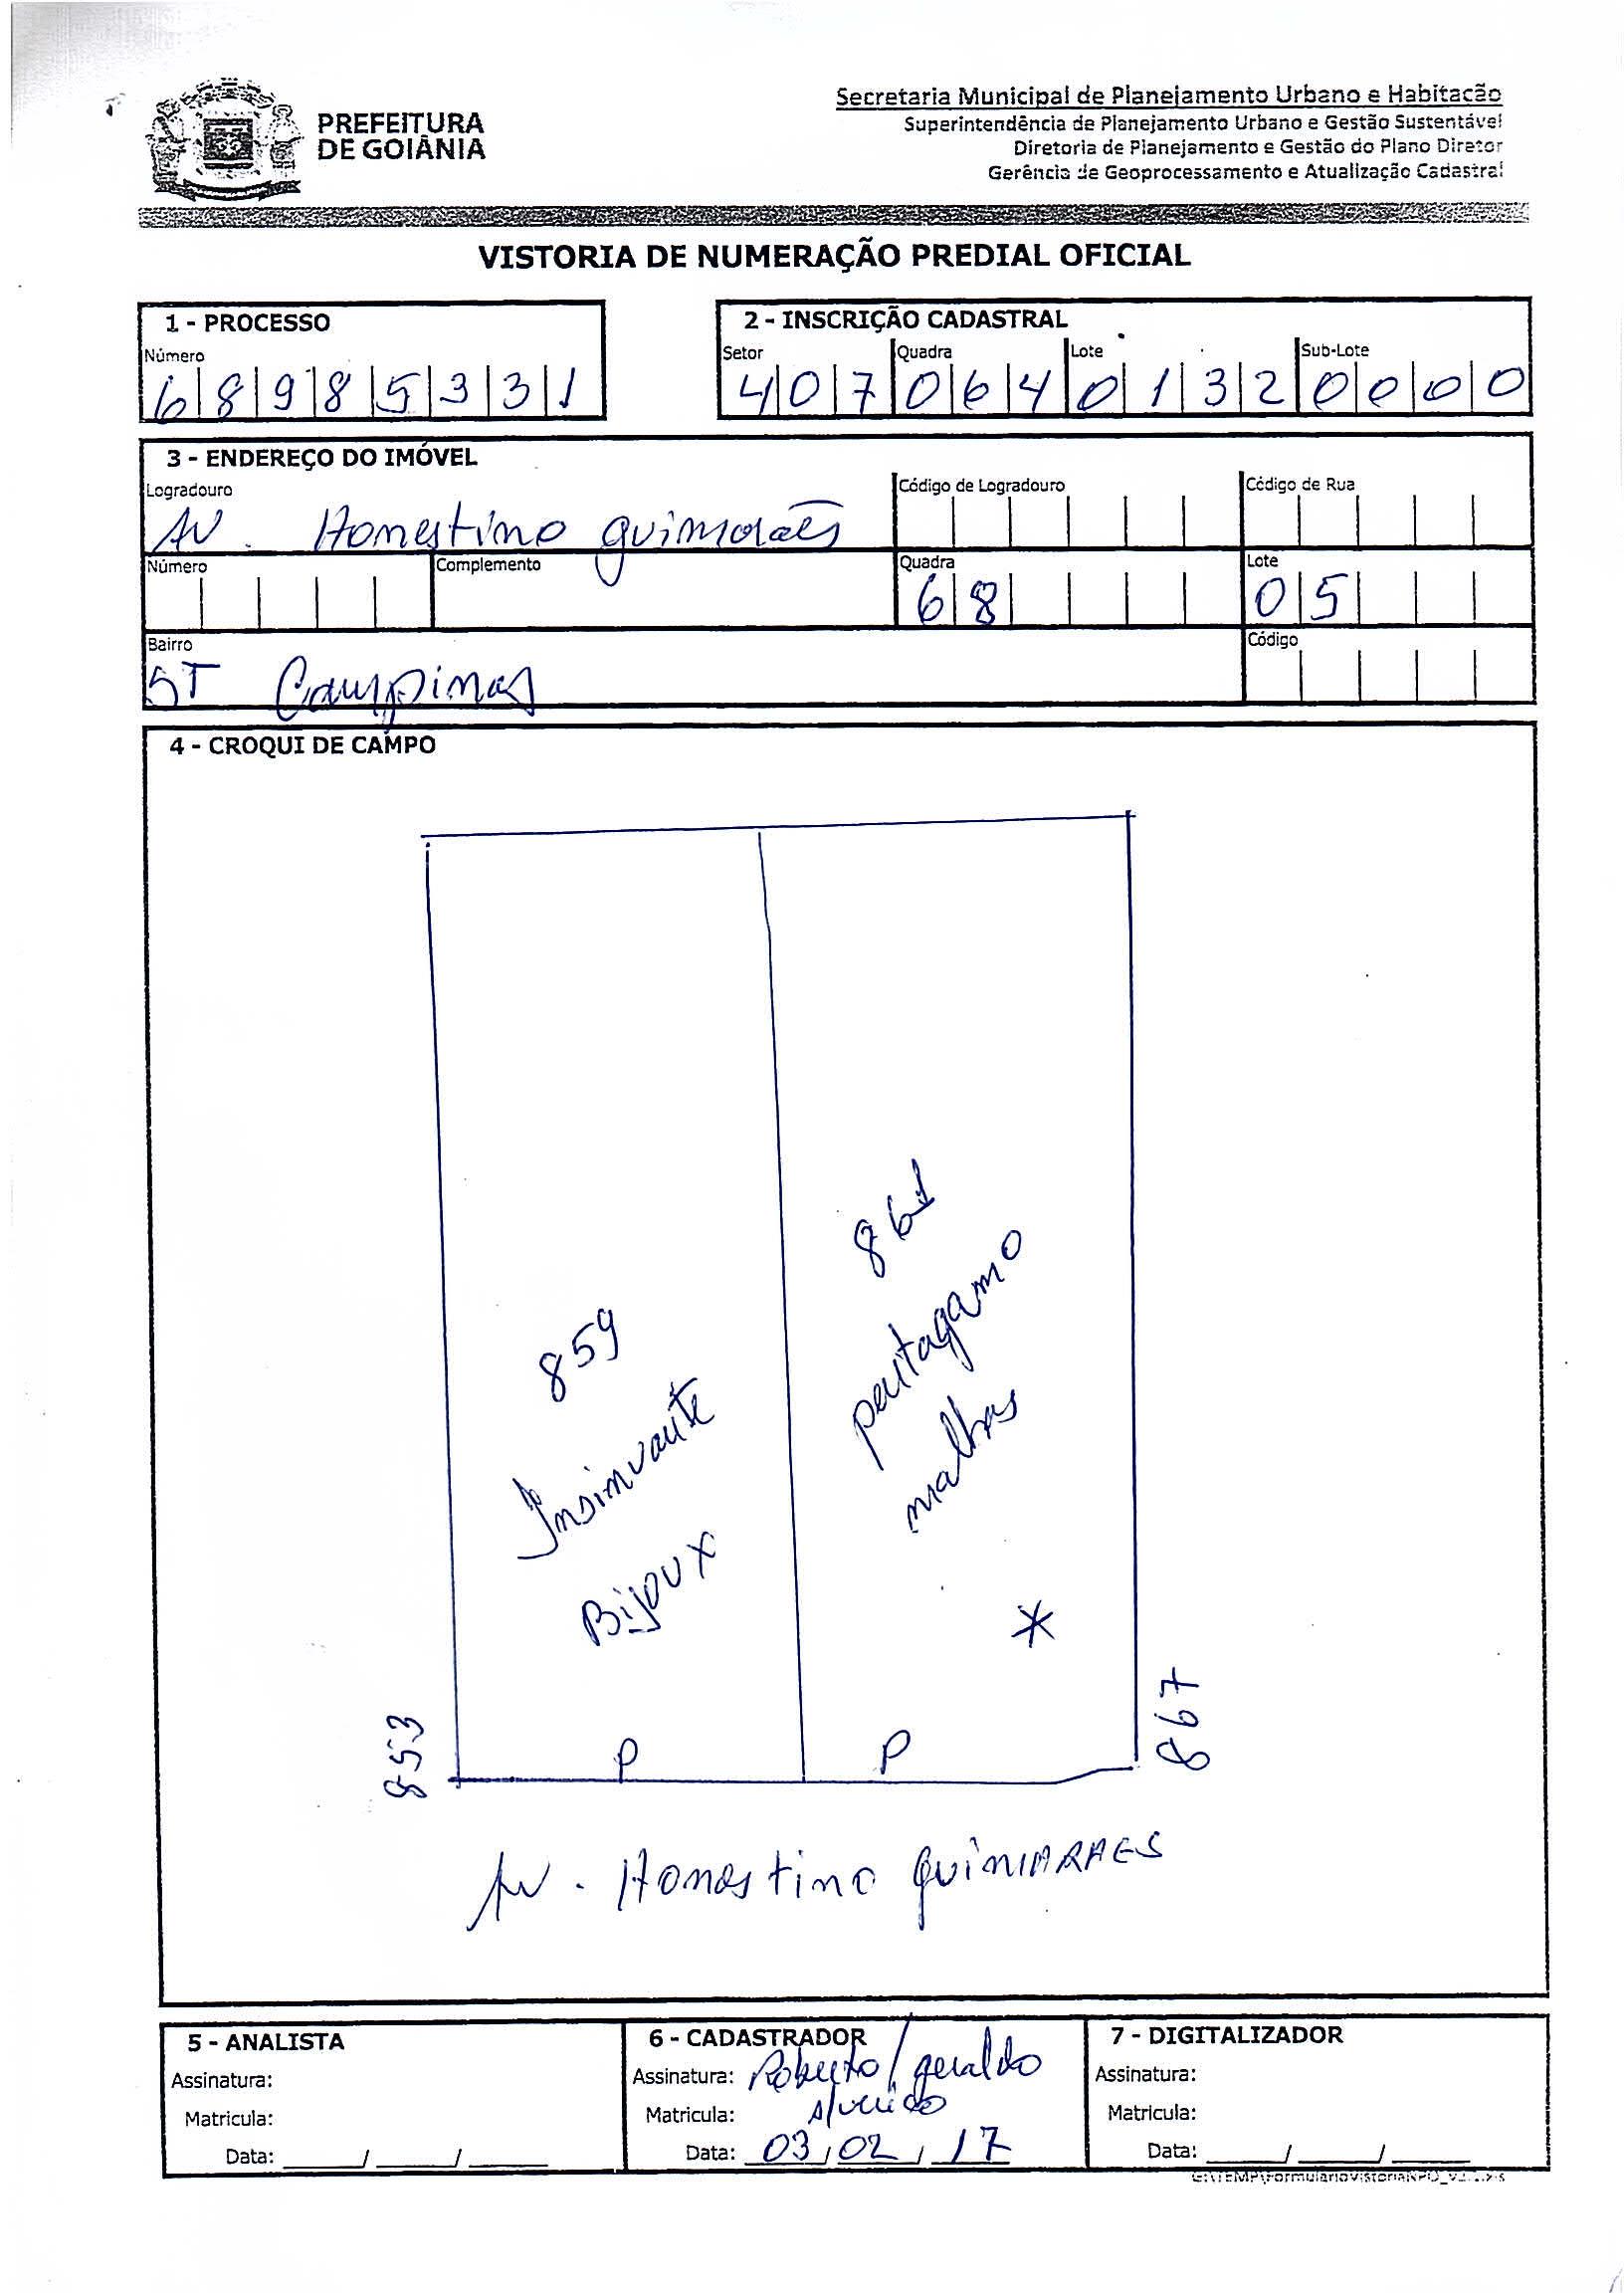 PREFEITURA
DE GOIÂNIA
Secretaria Municipal de Planejamento Urbano e Habitação
Superintendência de Planejamento Urbano e Gestão Sustentável
Diretoria de Planejamento e Gestão do Plano Diretor
Gerência de Geoprocessamento e Atualização Cadastral
VISTORIA DE NUMERAÇÃO PREDIAL OFICIAL
1 - PROCESSO
Número
68985331
2 - INSCRIÇÃO CADASTRAL
Setor Quadra Lote Sub-Lote
407 064 0132 0000
3 - ENDEREÇO DO IMÓVEL
Logradouro Código de Logradouro Código de Rua
AV. Honestino guimarães
Número Complemento Quadra Lote
68 05
Bairro Código
ST Campinas
4 - CROQUI DE CAMPO
861
pertagamo
malhas
859
Insinuante
Bijoux
*
853
P
P
867
AV. Honestino GuimARAES
5 - ANALISTA
Assinatura:
Matricula:
Data: ____/____/____
6 - CADASTRADOR
Assinatura: Roberto/geraldo
Matricula:
Data: 03/02/17
7 - DIGITALIZADOR
Assinatura:
Matricula:
Data: ____/____/____